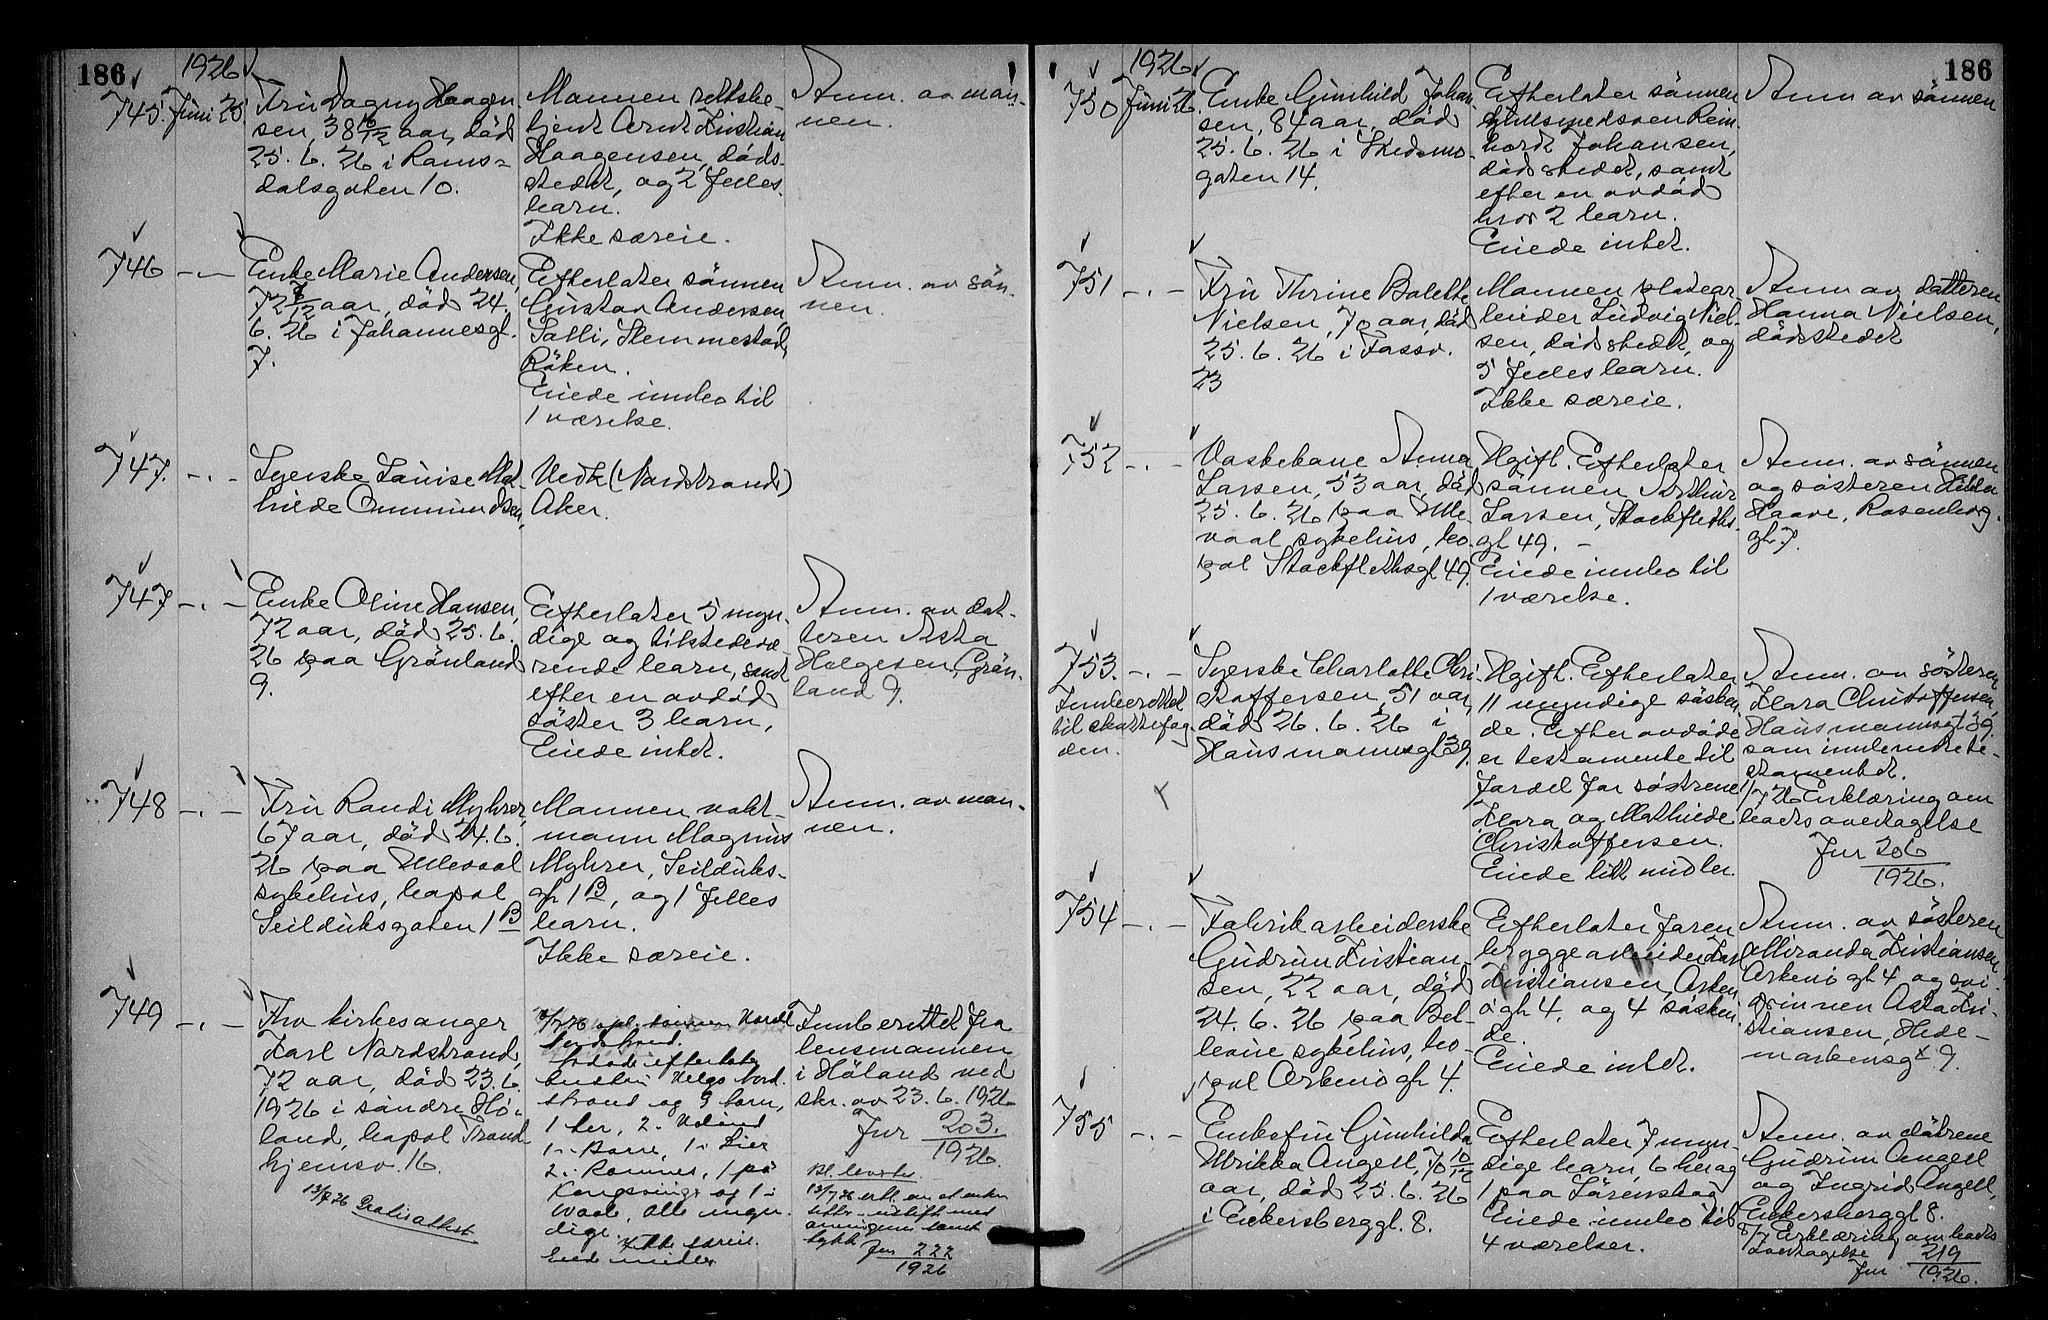 186
1926
745. Juni 25.
Fru Dagny Haagen-
sen, 38 10/12 aar, död
25. 6. 26 i Rams-
dalsgaten 10.
Mannen rettsbe-
tjent Arnt Kristian
Haagensen, döds-
stedet, og 2 felles-
barn.
Ikke særeie.
Anm. av man-
nen.
746 - " -
Enke Marie Andersen,
72 7/12 aar, död 24.
6. 26 i Johannesgt.
7.
Efterlater sönnen
Gustav Andersen,
Slemmestad,
Röken.
Eiede innbo til
1 værelse.
Anm. av sön-
nen.
747. - " -
Syerske Louise Mat-
hilde Ommundsen,
Vedk (Nordstrand)
Aker.
747 - " -
Enke Oline Hansen,
72 aar, död 25. 6.
26 paa Grönland
9.
Efterlater 5 myn-
dige og tilstedevæ-
rende barn, samt
efter en avdöd
söster 3 barn,
Eiede intet.
Anm. av dat-
teren Asta
Helgesen, Grön-
land 9.
748 - " -
Fru Randi Myhrer,
67 aar, död 24. 6.
26 paa Ullevaal
sykehus, bopæl
Seilduksgaten 1 B
Mannen vakt-
mann Magnus
Myhrer, Seilduks-
gt 1 B, og 1 felles
barn.
Ikke særeie.
Anm. av man-
nen.
749 - " -
Fhv kirkesanger
Karl Nordstrand,
72 aar, död 23. 6.
1926 i söndre Hö-
land, bopæl Trond-
hjemsv. 16.
13/7 26 Gratisattest
Nordstrand.
Avdöde efterlater
Helga Nord-
strand og 9 barn,
1 her, 2 i
1 i 1 i Lier
2 i Romner, 1 på
Kongsvinger og 1 i
alle myn-
dige.
Ikke særeie.
Eied midler
Innberettet fra
lensmannen
i Höland ved
skr. av 23. 6. 1926
Jnr 203.
1926.
13/7 26 erkl. om at enken
sitter i uskift med
arvingene samt-
tykk
Jnr 222
1926
186
1926
750 Juni 26.
Enke Gunhild Johan-
sen, 84 aar, död
25. 6. 26 i Skedsmo-
gaten 14.
Efterlater sönnen
gullsmedsven Rein-
hardt Johansen,
dödsstedet, samt
efter en avdöd
bror 2 barn.
Eiede intet.
Anm av sönnen
751 - " -
Fru Thrine Bolette
Nielsen, 70 aar, död
25. 6. 26 i Fossv.
23
Mannen platear-
beider Ludvig Niel-
sen, dödsstedet, og
5 felles barn.
Ikke særeie.
Anm av datteren
Hanna Nielsen,
dödstedet
752 - " -
Vaskekone Anna
Larsen, 53 aar, död
25. 6. 26 paa Ulle-
vaal sykehus, bo-
pæl Stockflethsgt 49.
Ugift. Efterlater
sönnen Arthur
Larsen, Stockfleths-
gt 49. -
Eiede innbo til
1 værelse.
Anm. av sönnen
og sösteren Hilda
Haave, Rosenborg-
gt. 7.
753. - " -
Innberettet
til skattefog-
den.
Syerske Charlotte Chri-
stoffersen, 51 aar,
död 26. 6. 26 i
Hausmannsgt 39.
Ugift. Efterlater
11 myndige sösken-
de. Efter avdöde
er testamente til
fordel for söstrene
Klara og Mathilde
Christoffersen.
Eiede litt midler.
Anm. av sösteren
Klara Christoffersen,
Hausmannsgt 39.
som innleverte te-
stamentet.
1/7 26 Erklæring om
boets overtagelse
Jnr 206
1926.
754 - " -
Fabrikarbeiderske
Gudrun Kristian-
sen, 22 aar, död
24. 6. 26 paa Bet-
leoue sykehus, bo-
pæl Arkens gt 4.
Efterlater faren
bryggearbeider
Kristiansen, Arken
s gt 4. og 4 sösken-
de.
Eiede intet.
Anm. av sösteren
Miranda Kristiansen,
Arkens gt 4 og svi-
gerinnen Asta Kri-
stiansen, Hede-
markensgt 9.
755 - " -
Enkefru Gunhilda
Ulrikka Angell, 70 10/12
aar, död 25. 6. 26
i Eckersberggt. 8.
Efterlater 7 myn-
dige barn, 6 her og
1 paa Lörenskog
Eiede innbo til
4 værelser.
Anm. av dötrene
Gudrun Angell
og Ingrid Angell,
Eckersberggt 8.
8/7 Erklæring om boets
overtagelse
Jnr 219
1926.